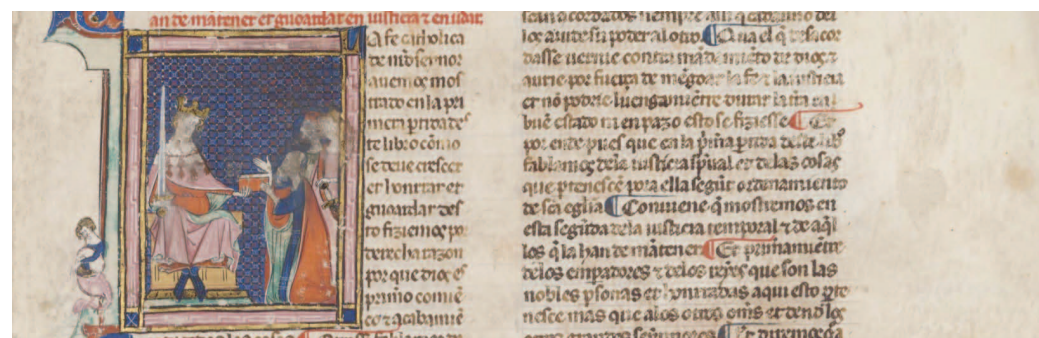 an de mãtener et guoardar en iusticia ⁊ en udat
A fe catholica
de n̄ro sennor
auemos mos
trado en la pri
mera ptida des
te libro cõmo
se deue creescer
et honrrar et
guoardar des
to fiziemos por
derecha razon
por que dios es
primo conuiẽ
çe ⁊ acabamiẽ
los auitesse su poder al otro ¶ Ca na el q̃ desacor
dasse uernie contra mãdamiẽto de dios ⁊
aurie por fuerça de mẽgoar la fe ⁊ la iusticia
et nõ podrie luengamiẽtre durar la tr̃ra en
buẽ estado ni en pazo esto se fiziesse ¶ Et
por ende pues que en la p̃mã ptida deste lib°
fablamos de la iusticia sp̃ual et de las cosas
que ptenesçẽ pora ella segũt ordenamiento
de sc̃a eglia ¶ Conuiene q̃ mostremos en
esta segũda de la iusticia temporal ⁊ de aq̃l
los q̃ la han de mãtener ¶ Et primamiẽtre
delos empadores ⁊ delos reyes que son las
nobles psonas et honrradas a qui esto pte
nesce mas que alos otros oms et dend los